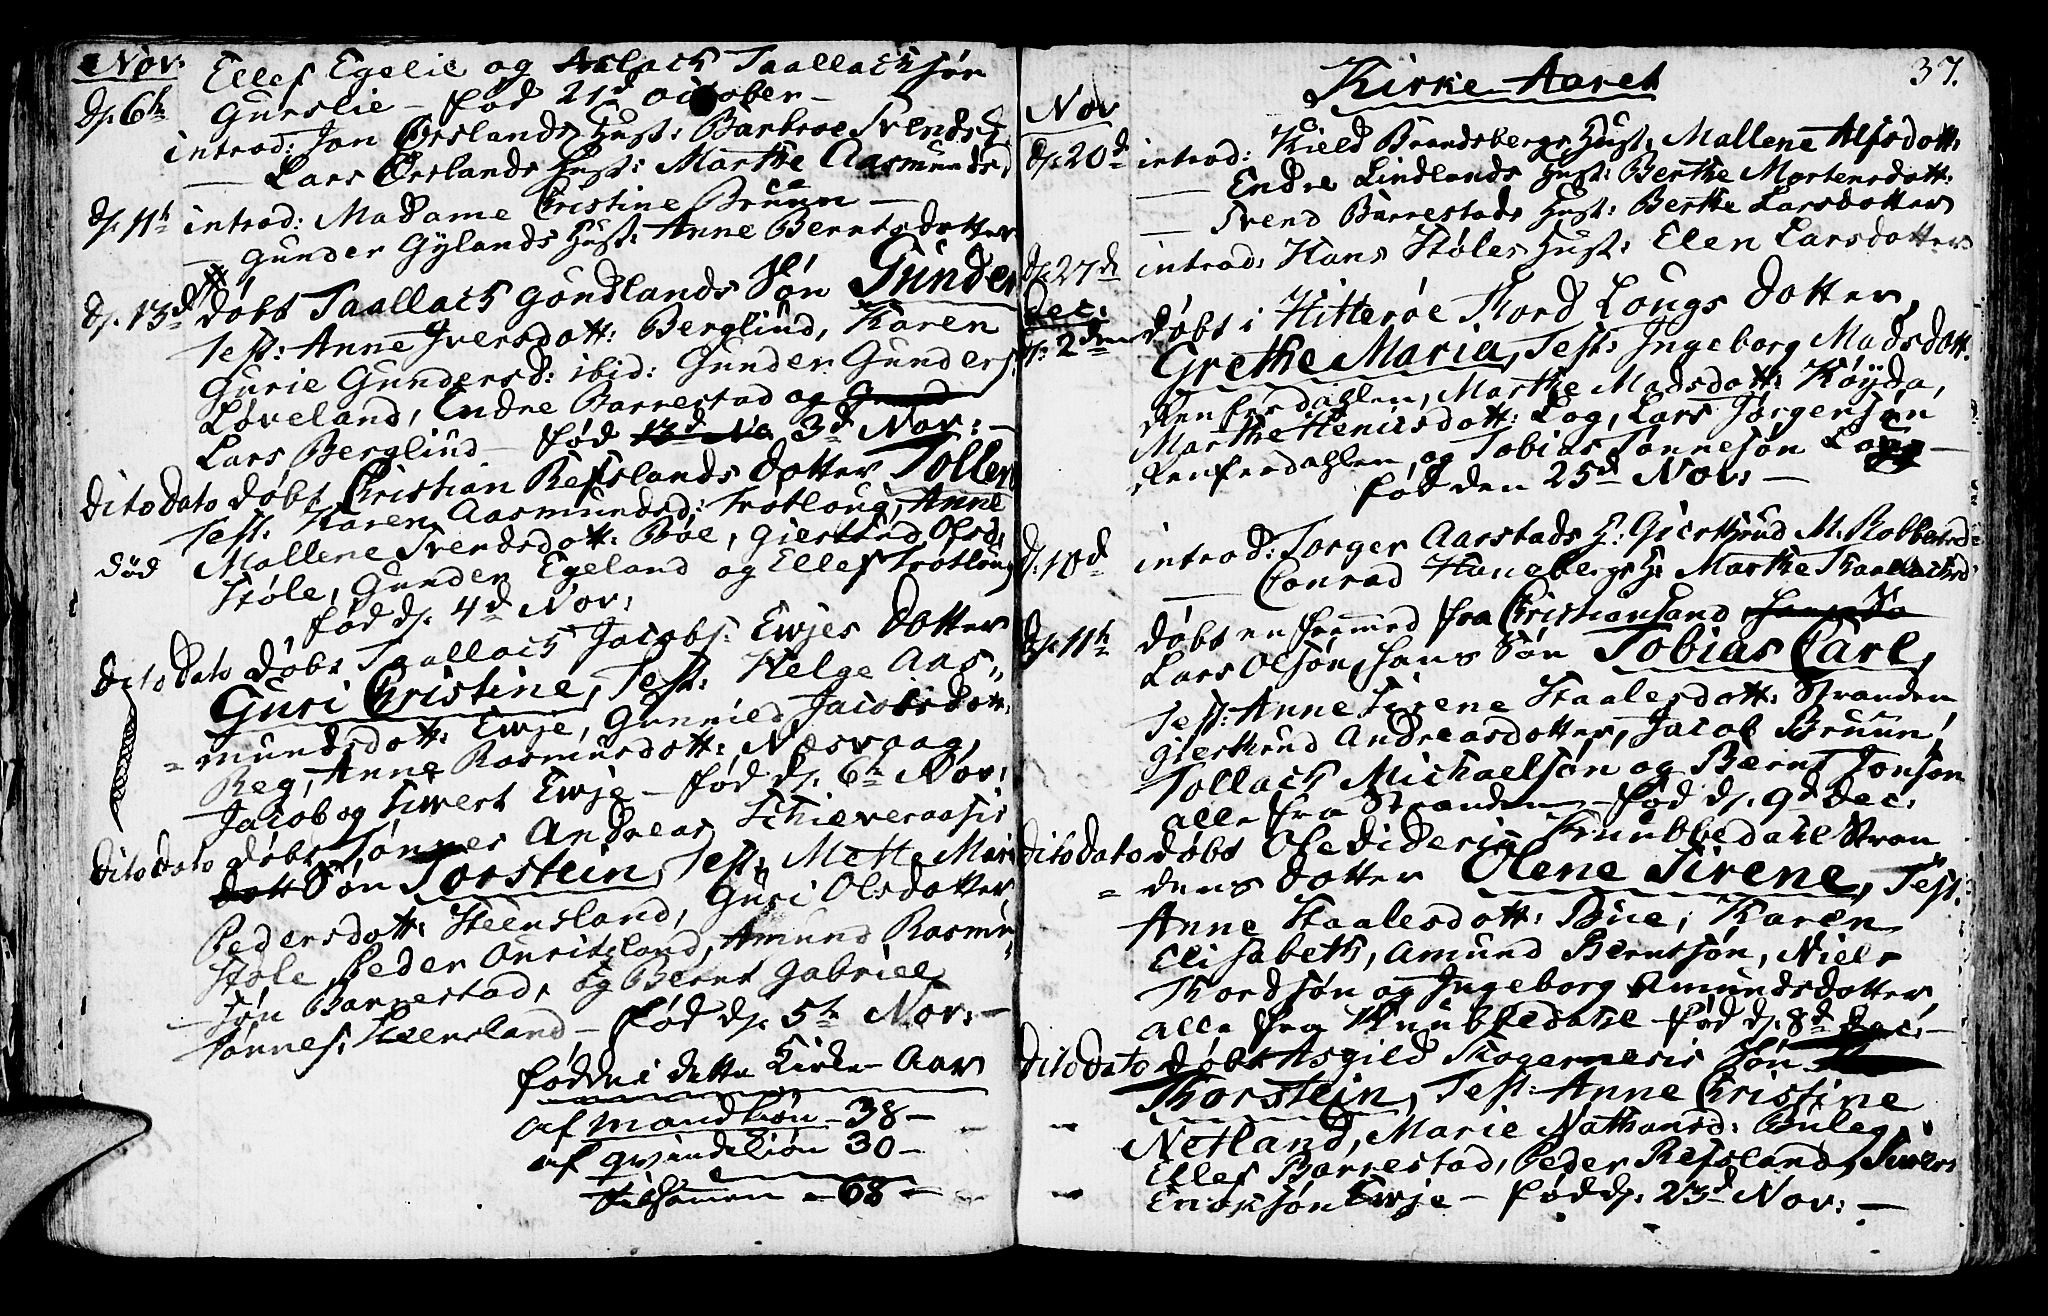 Nov:
Ellef Egelie og Aslach Taallachsøn
Gurslie – fød 21d October –
d. 6te introd: Jon Ørslands Hust: Barbroe Svendsd.
— Lars Ørslands Hust: Marthe Aasmundsd.
d. 11te introd: Madame Christine Bruun —
— Gunder Gÿlands Hust: Anne Berntsdotter
d. 13d døbt Taallach Gøndlands Søn Gunder
Test: Anne Iversdott: Berglund, Karen
Gurie Gundersd: ibid: Gunder Gunders:
Løveland, Endre Barrestad og
Lars Berglund – fød 3d Nov: –
dito dato døbt Christian Refslands dotter Tollen
Test: Karen Aasmundsd: Trotloug, Anne
død Mallene Svendsdott: Bøe, Giertrud Olsd:
Støle, Gunder Egeland og Ellef Trotloug
fød d. 4d Nov:
dito dato døbt Taallach Jacobs: Ewjes dotter
Guri Christine, Test: Helge Aas„
„mundsdott: Ewje, Gunnild Jacobsdott:
Reg, Anne Rasmusdott: Næsvaag,
Jacob og Siwert Ewje – fød d. 6te Nov:
dito dato døbt Tønnes Andreas
dott Søn Torstein, Test: Mette Mari
Pedersdott: Steensland, Guri Olsdotter
Støle Peder Ouritsland, Amund Rasmu„
„søn Barrestad, og Bernt Gabriel
Tønnes: Steensland – fød d. 5te Nov: –
fødde i dette Kirke-Aar
af mandkiøn – 38 –
af qvindekiøn 30 –
tilsamen – 68 –
37.
Kirke-Aaret
Nov
d. 20d introd: Kield Brandsbergs Hust: Mallene Alfsdott:
— Endre Lindlands Hust: Berthe Mortensdott:
— Svend Barrestads Hust: Berthe Larsdotter
d. 27d introd: Hans Støles Hust: Elen Larsdotter
Dec:
d. 2den døbt i Hitterøe Thord Lougs dotter,
Grethe Maria, Test: Ingeborg Madsdott:
Renfrdahlen, Marthe Madsdott: Køÿda,
Marthe Henicsdott: Log, Lars Jørgensøn
og Tobias Tønnesøn
fød den 25d Nov: –
d. 10d introd: Torger Aarstads H: Gierthrud M. Robberstad
— Conrad Hanebergs H: Marthe Thaallachsd:
d. 11te døbt en fremmed fra Christiansand
Lars Olsøn, hans Søn Tobias Carl,
Test: Anne Sirene Staalesdott: Stranden
Gierthrud Andreasdotter, Jacob Bruun,
Tollach Michaelsøn og Bærnt Jonsøn
alle fra Stranden – fød d. 9d Dec:
dito dato døbt Ole Diderich Knubbedahl Stran
„dens dotter Olene Sirene, Test:
Anne Staalesdott: Bue, Karen
Elisabeth, Amund Berntsøn, Niels
Thordsøn og Ingeborg Amundsdotter,
alle fra Knubbedahl fød d. 8d Dec: –
dito dato døbt Asgild Skogernesis Søn
Thorstein, Test: Anne Christine
Netland, Marie Nathansd: Buleg,
Ellef Barrestad, Peder Refsland, Siwert
Enoksøn Ewje – fød d. 23d Nov: –